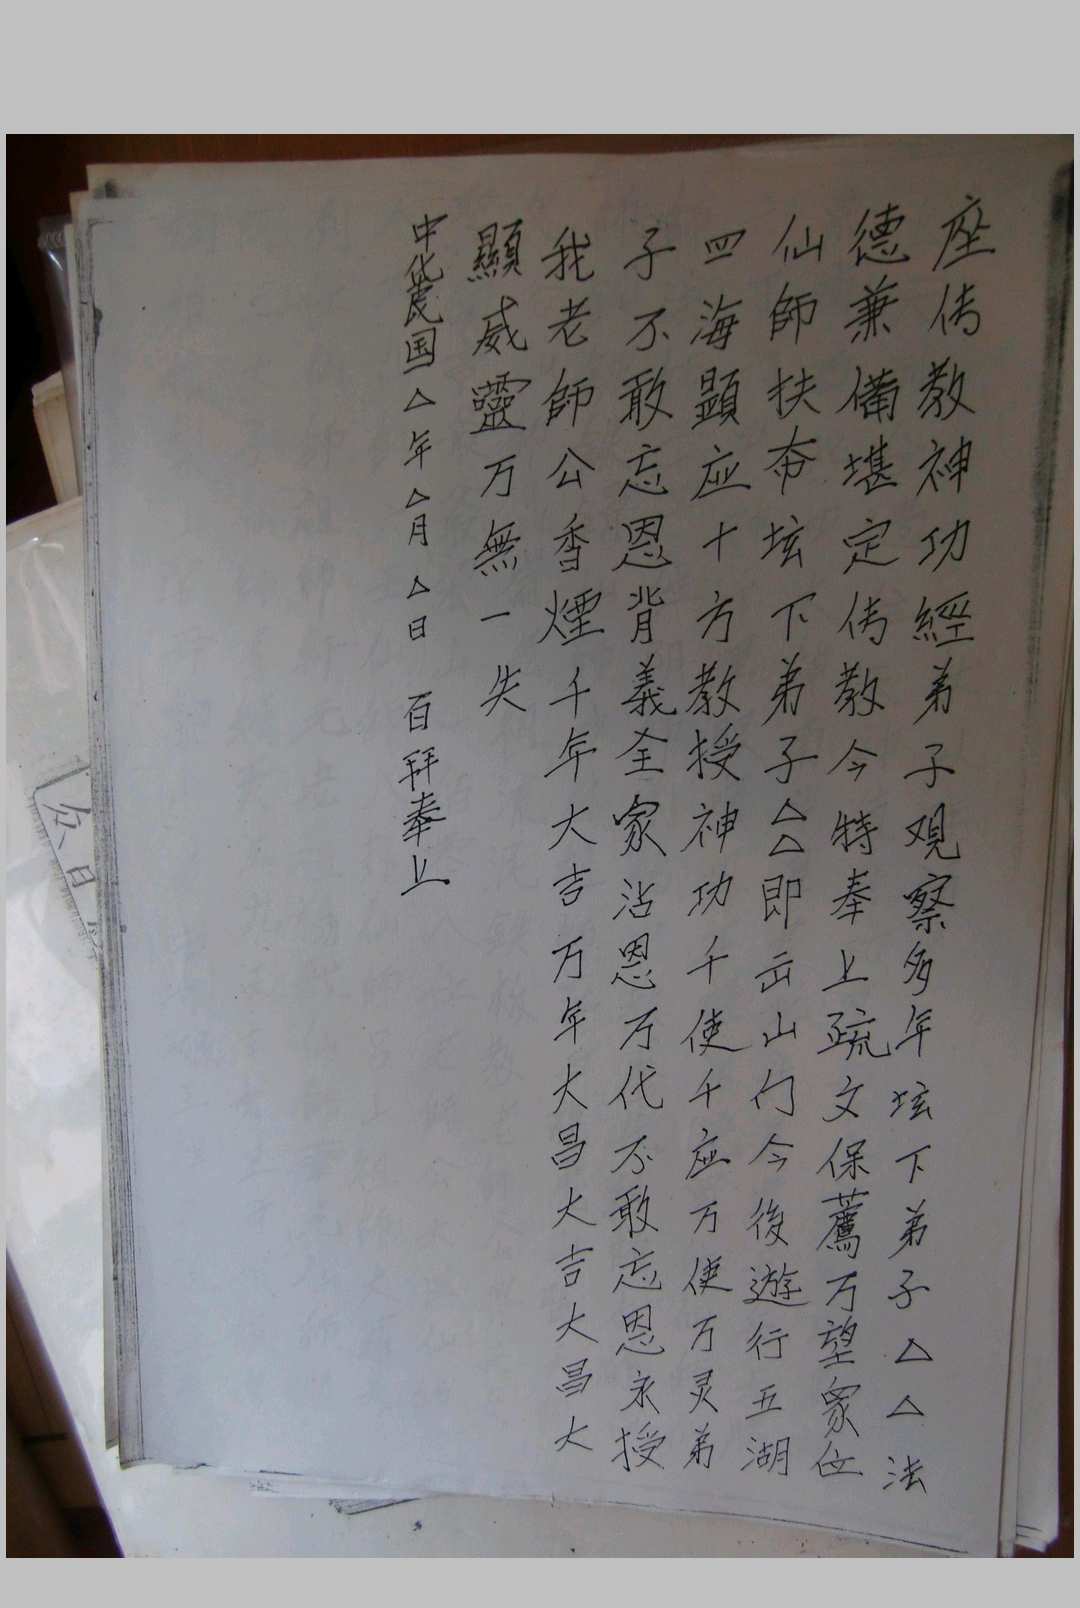 座传教神功經弟子观察多年坛下弟子△△法
德兼備堪定传教今特奉上疏文保薦万望眾位
仙師扶夯坛下弟子△△即出山门今後遊行五湖
四海顕应十方教授神功千使千应万使万灵弟
子不敢忘恩背義全家沾恩万代不敢忘恩永授
我老師公香煙千年大吉万年大昌大吉大昌大
顯威靈万無一失
中华民国△年△月△日 百拜奉上